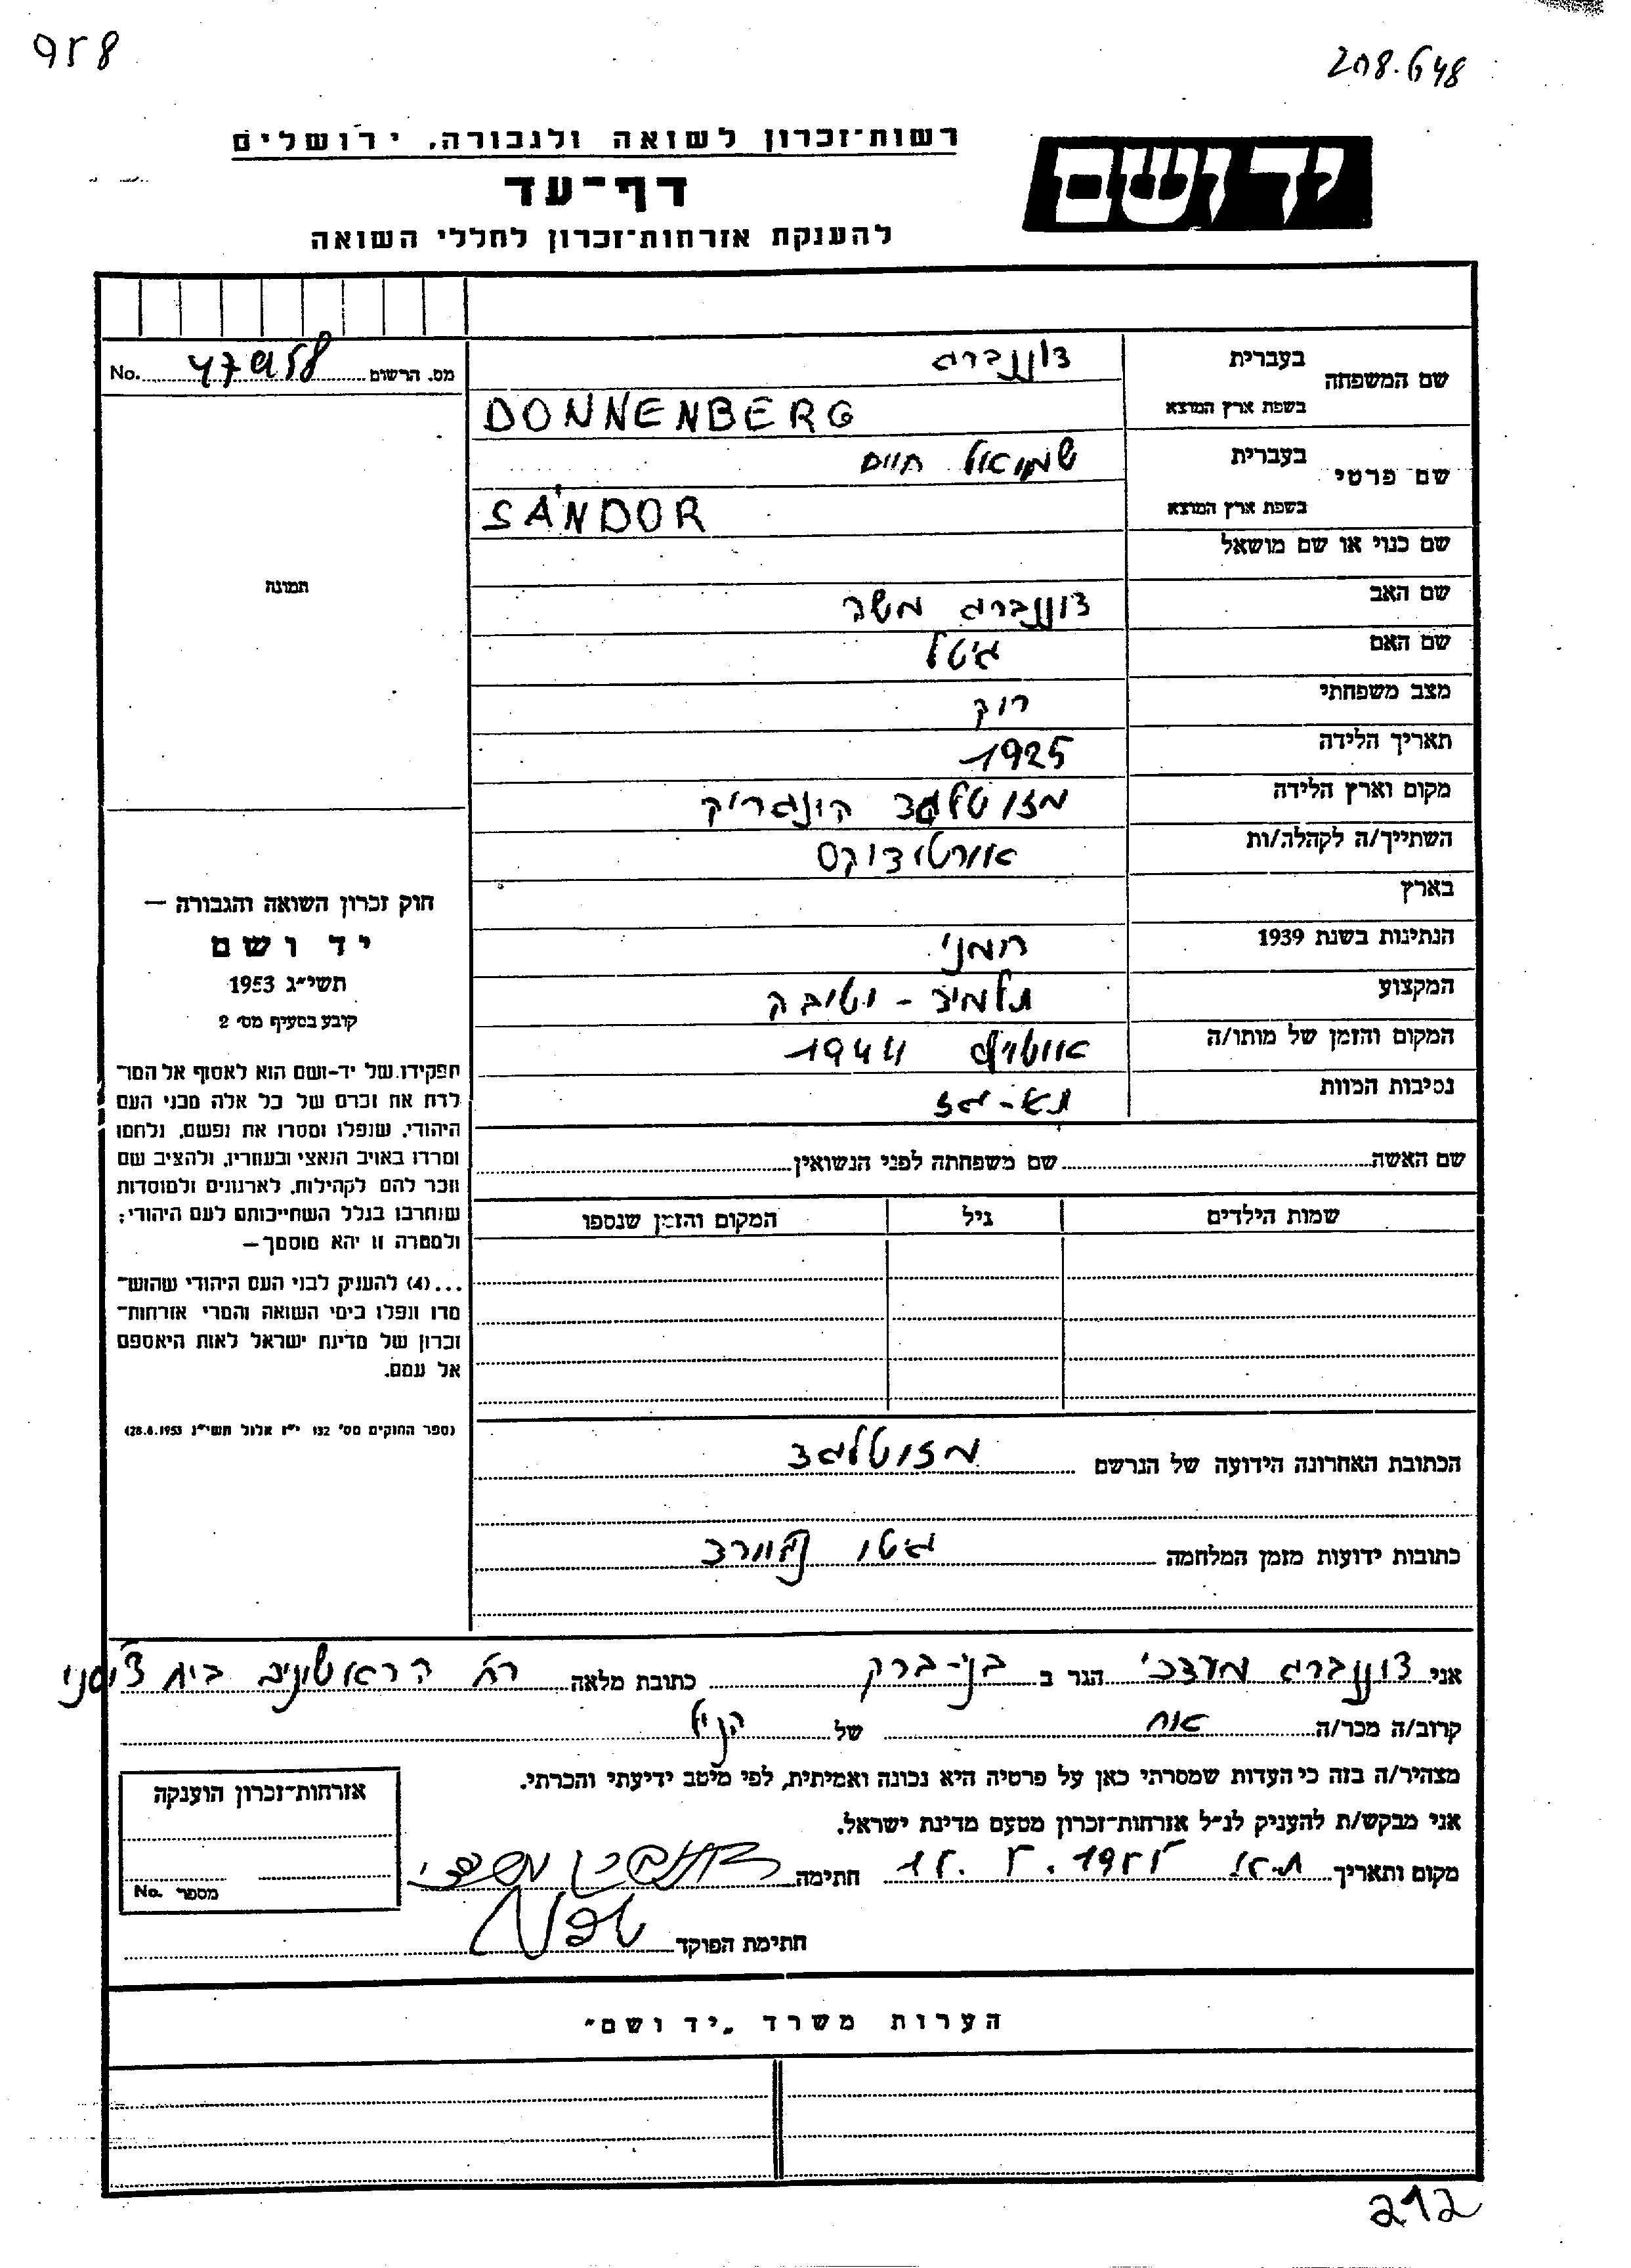 958
208.648
רשות־זכרון לשואה ולגבורה, ירושלים
יד ושם
דף־עד
להענקת אזרחות־זכרון לחללי השואה
מס. הרשום 47958 No.
שם המשפחה בעברית דוננברג
בשפת ארץ המוצא DONNENBERG
שם פרטי בעברית שמואל חיים
בשפת ארץ המוצא SÁNDOR
שם כנוי או שם מושאל
שם האב דוננברג משה
שם האם גיטל
מצב משפחתי רוק
תאריך הלידה 1925
מקום וארץ הלידה מזוטלגד הונגריה
השתייך/ה לקהלה/ות אורטודוקס
בארץ
הנתינות בשנת 1939 רומני
המקצוע תלמיד - ישיבה
המקום והזמן של מותו/ה אושויץ 1944
נסיבות המוות תא - גז
תמונה
חוק זכרון השואה והגבורה —
יד ושם
תשי״ג 1953
קובע בסעיף מס׳ 2
תפקידו של יד-ושם הוא לאסוף אל המו־
לדת את זכרם של כל אלה מבני העם
היהודי, שנפלו ומסרו את נפשם, נלחמו
ומרדו באויב הנאצי ובעוזריו, ולהציב שם
וזכר להם לקהילות, לארגונים ולמוסדות
שנחרבו בגלל השתייכותם לעם היהודי;
ולמטרה זו יהא מוסמך—
...(4) להעניק לבני העם היהודי שהוש־
מדו ונפלו בימי השואה והמרי אזרחות־
זכרון של מדינת ישראל לאות היאספם
אל עמם.
(ספר החוקים מס׳ 132 י״ז אלול תשי״ג 28.8.1953)
שם האשה שם משפחתה לפני הנשואין
שמות הילדים גיל המקום והזמן שנספו
הכתובת האחרונה הידועה של הנרשם מזוטלגד
כתובות ידועות מזמן המלחמה גטו ורד
אני דוננברג מרדכי הגר ב בני-ברק כתובת מלאה רח הראשונים בית
קרוב/ה מכר/ה אח של הנ״ל
מצהיר/ה בזה כי העדות שמסרתי כאן על פרטיה היא נכונה ואמיתית, לפי מיטב ידיעתי והכרתי.
אני מבקש/ת להעניק לנ״ל אזרחות־זכרון מטעם מדינת ישראל.
מקום ותאריך ת.א. 15.5.1955 חתימה
חתימת הפוקד
אזרחות־זכרון הוענקה
מספר No.
הערות משרד „יד ושם״
212